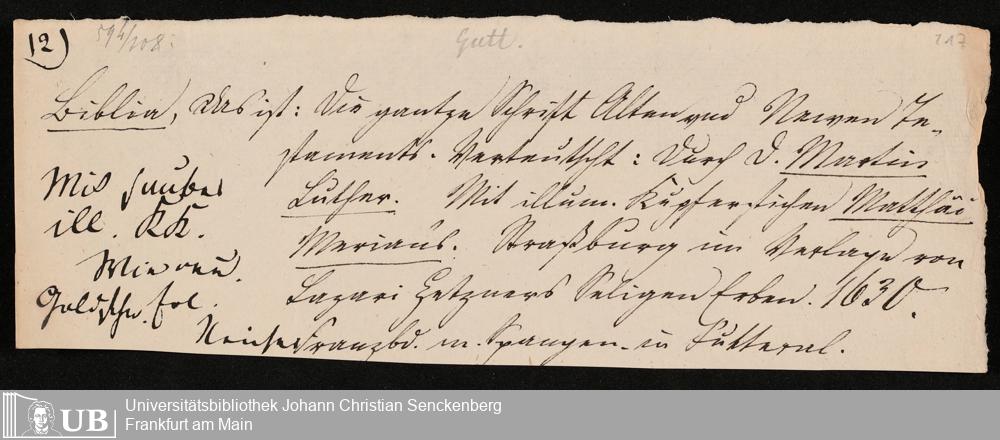 12)
Gutt.
217
Biblia, Das ist: Die gantze Schrifft Alten und Newen Te-
staments. Verteutscht: Durch D. Martin
Luther. Mit illum. Kupferstichen Matthäi
Merians. Straßburg im Verlage von
Lazari Zetzners Seligen Erben. 1630.
Mit sauber
ill. KK.
Wie neu.
Goldschn. fol.
Franzbd. m. Spangen. in Futteral.
UB
Universitätsbibliothek Johann Christian Senckenberg
Frankfurt am Main